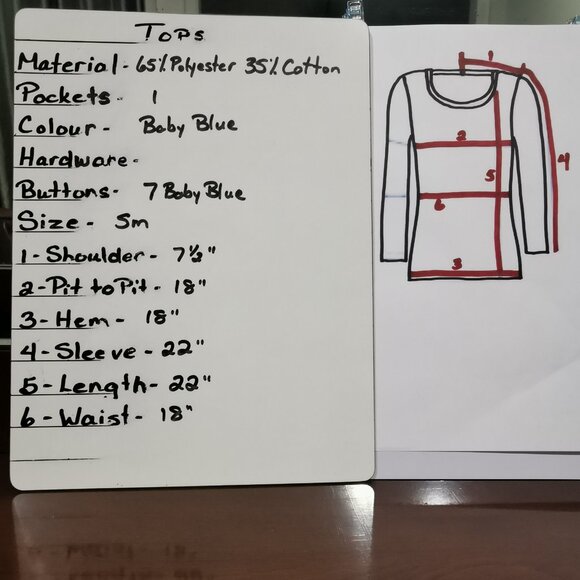 Tops
Material - 65% Polyester 35% Cotton
Pockets - 1
Colour - Baby Blue
Hardware -
Buttons - 7 Baby Blue
Size - Sm
1 - Shoulder - 7½"
2 - Pit to Pit - 18"
3 - Hem - 18"
4 - Sleeve - 22"
5 - Length - 22"
6 - Waist - 18"
1
2
4
5
6
3